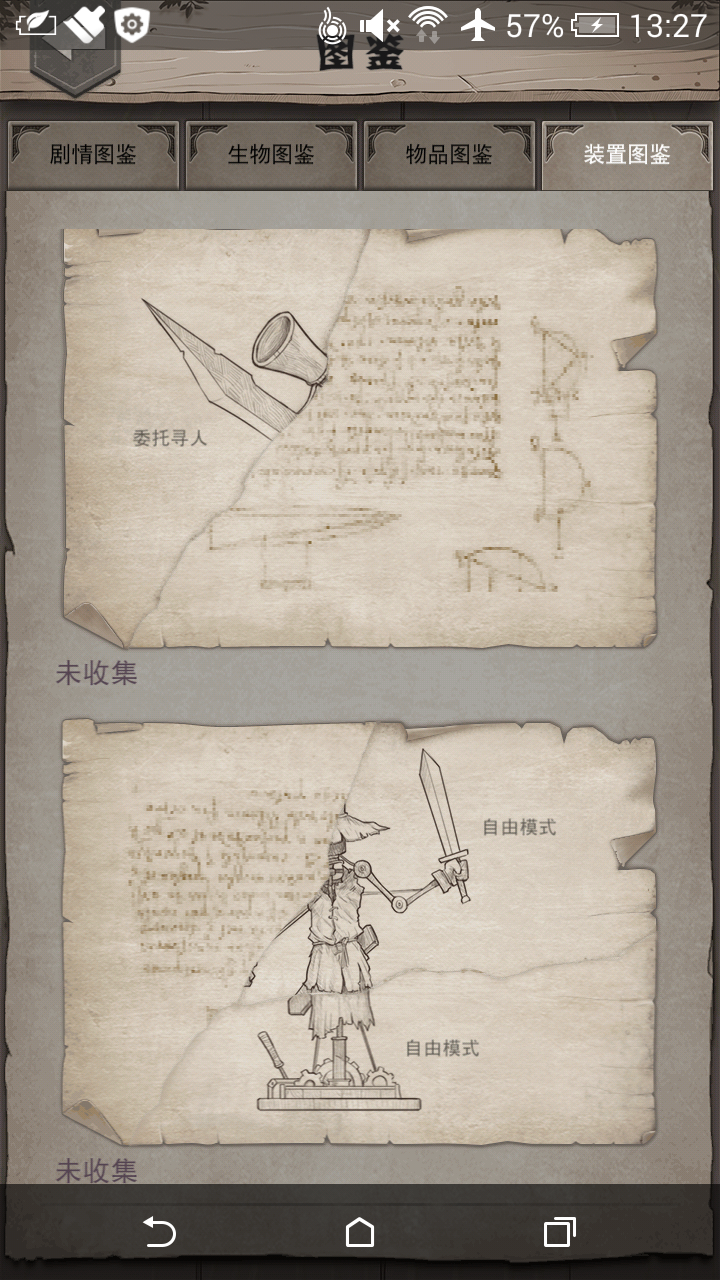 57% 13:27
图鉴
剧情图鉴 生物图鉴 物品图鉴 装置图鉴
委托寻人
未收集
自由模式
自由模式
未收集